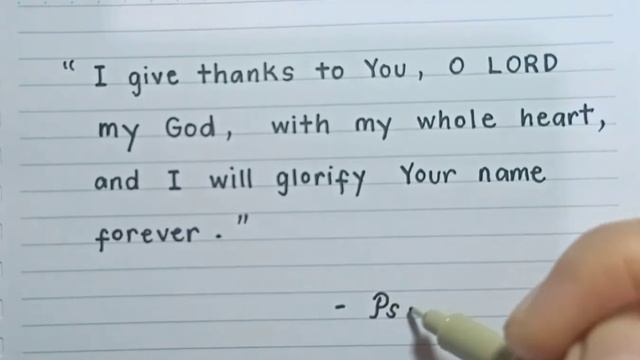 “ I give thanks to You, O LORD
my God, with my whole heart,
and I will glorify Your name
forever . ”
- Ps